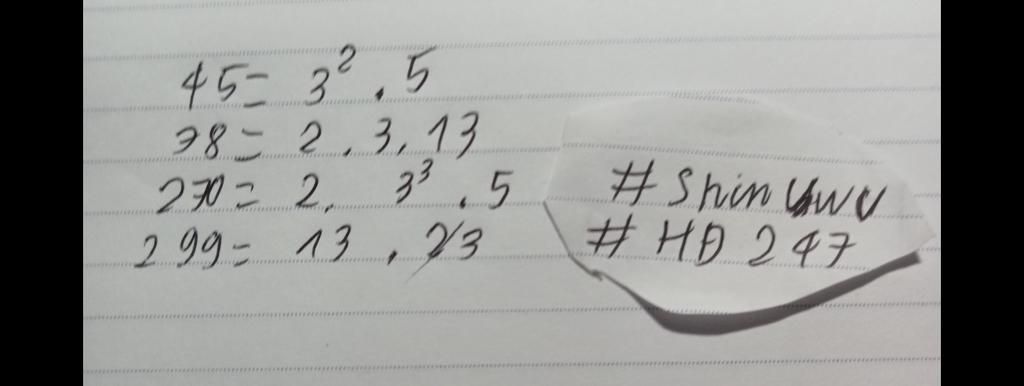 45 = 3² . 5
78 = 2 . 3 . 13
270 = 2 . 3³ . 5
299 = 13 . 23
# Shin UwU
# HD 247